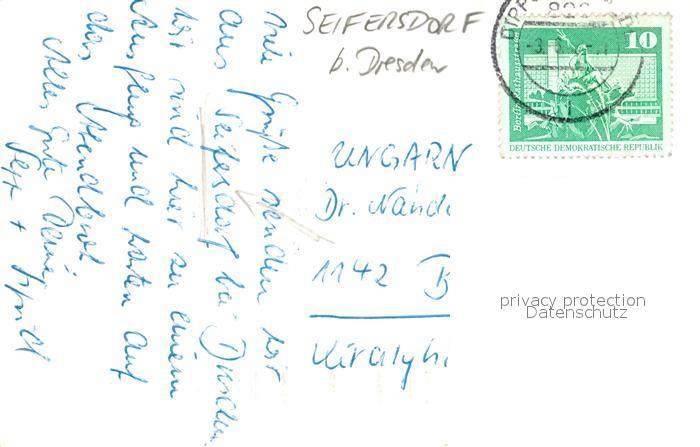 SEIFERSDORF
b. Dresden
Viele Grüße senden wir
aus Seifersdorf bei Dresden
wir sind hier zu einem
Ausflug und warten auf
das Abendbrot
Alles Gute Deine
Sepp +
UNGARN
Dr. Nándo
1142 B
Királyh
10
Berlin, Rathausstraße
DEUTSCHE DEMOKRATISCHE REPUBLIK
DIPPO
privacy protection
Datenschutz